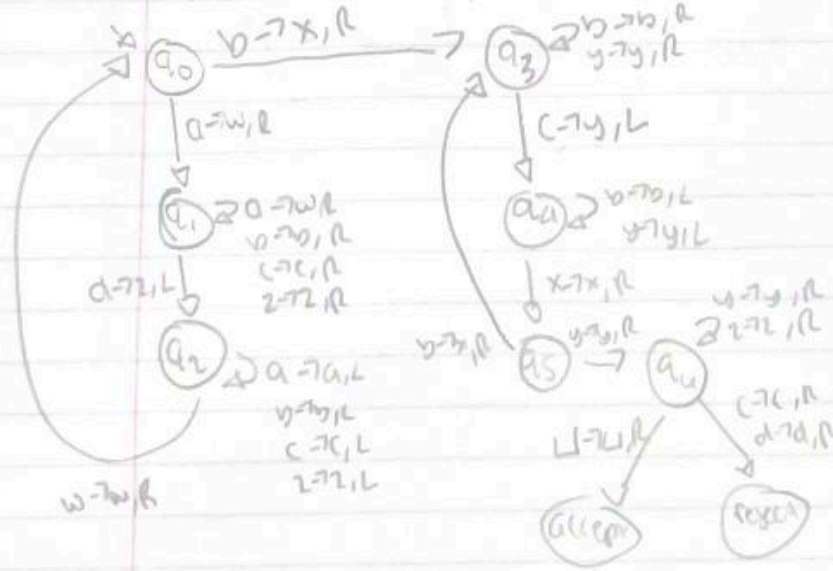 b→x, R
q0
q3
b→b, R
y→y, R
a→w, R
c→y, L
q1
a→w, R
b→b, R
c→c, R
z→z, R
q4
b→b, L
y→y, L
d→z, L
x→x, R
q2
a→a, L
b→b, L
c→c, L
z→z, L
b→x, R
q5
y→y, R
y→y, R
z→z, R
c→c, R
d→d, R
⊔→⊔, R
w→w, R
accept
reject